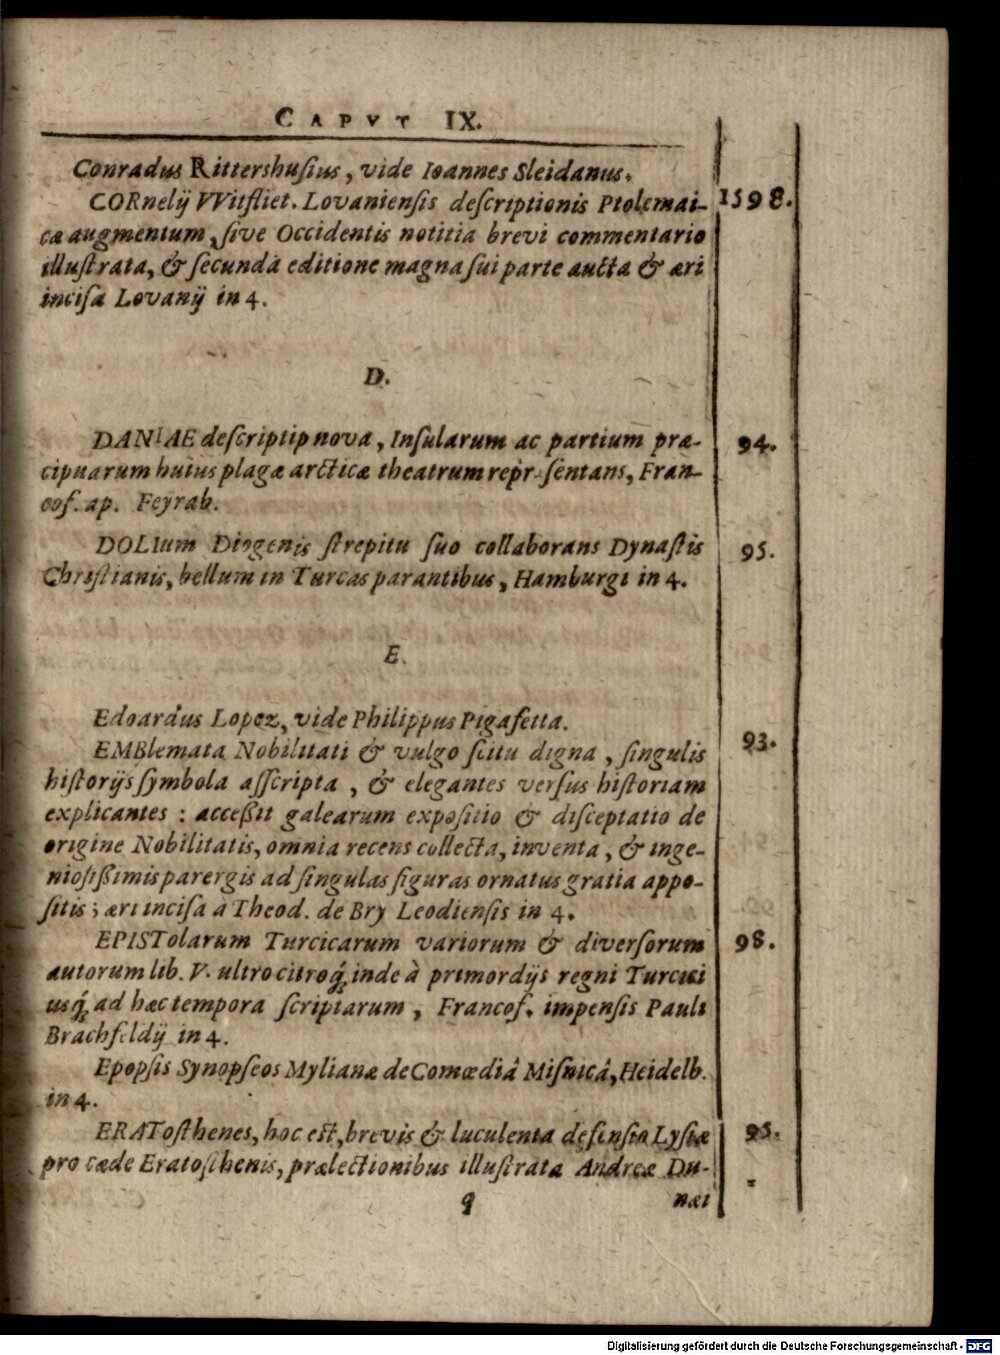 CAPVT IX.
Conradus Rittershusius, vide Ioannes Sleidanus.
CORnelij VVitfliet. Lovaniensis descriptionis Ptolemai- 1598.
cæ augmentum, sive Occidentis notitia brevi commentario
illustrata, & secundâ editione magna sui parte aucta & æri
incisa Lovanij in 4.
D.
DANIAE descriptip nova, Insularum ac partium præ- 94.
cipuarum huius plagæ arcticæ theatrum repr sentans, Fran-
cof. ap. Feyrab.
DOLIum Diogenis strepitu suo collaborans Dynastis 95.
Christianis, bellum in Turcas parantibus, Hamburgi in 4.
E.
Edoardus Lopez, vide Philippus Pigafetta.
EMBlemata Nobilitati & vulgo scitu digna, singulis 93.
historijs symbola asscripta, & elegantes versus historiam
explicantes : accessit galearum expositio & disceptatio de
origine Nobilitatis, omnia recens collecta, inventa, & inge-
niosissimis parergis ad singulas figuras ornatus gratia appo-
sitis ; æri incisa a Theod. de Bry Leodiensis in 4.
EPISTolarum Turcicarum variorum & diversorum 98.
autorum lib. V. ultro citroq́ inde à primordijs regni Turcici
usq́ ad hæc tempora scriptarum, Francof. impensis Pauli
Brachfeldij in 4.
Epopsis Synopseos Mylianæ de Comœdiâ Misnicâ, Heidelb.
in 4.
ERATosthenes, hoc est, brevis & luculenta defensio Lysiæ 95.
pro cæde Eratosthenis, prælectionibus illustrata Andreæ Du-
q næi
Digitalisierung gefördert durch die Deutsche Forschungsgemeinschaft - DFG